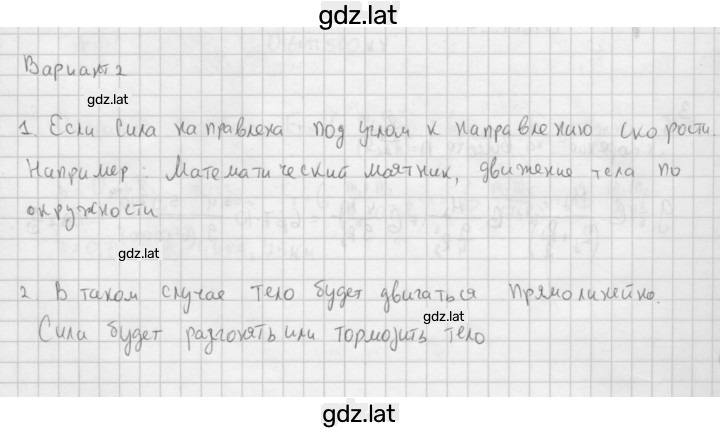 gdz.lat
Вариант 2
gdz.lat
1. Если сила направлена под углом к направлению скорости.
Например: Математический маятник, движение тела по
окружности
gdz.lat
2. В таком случае тело будет двигаться прямолинейно.
gdz.lat
Сила будет разгонять или тормозить тело
gdz.lat